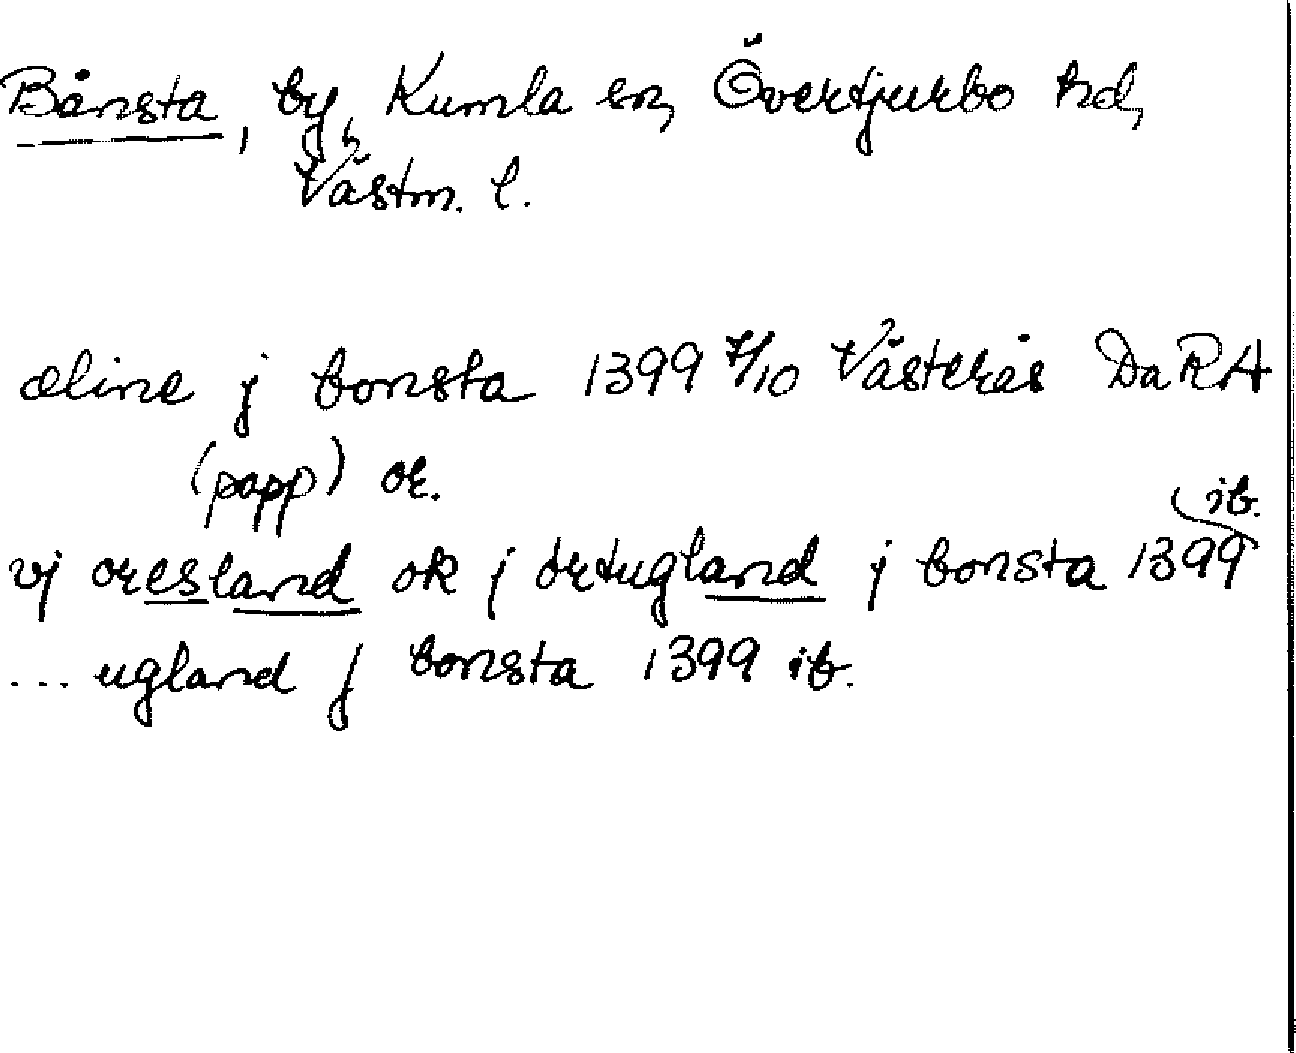 Bånsta, by, Kumla sn, Övertjurbo hd,
Västm. l.
æline j bonsta 1399 7/10 Västerås DaRA
(papp) or.
vj oresland ok j örtugland j bonsta 1399 ib.
... ugland j bonsta 1399 ib.